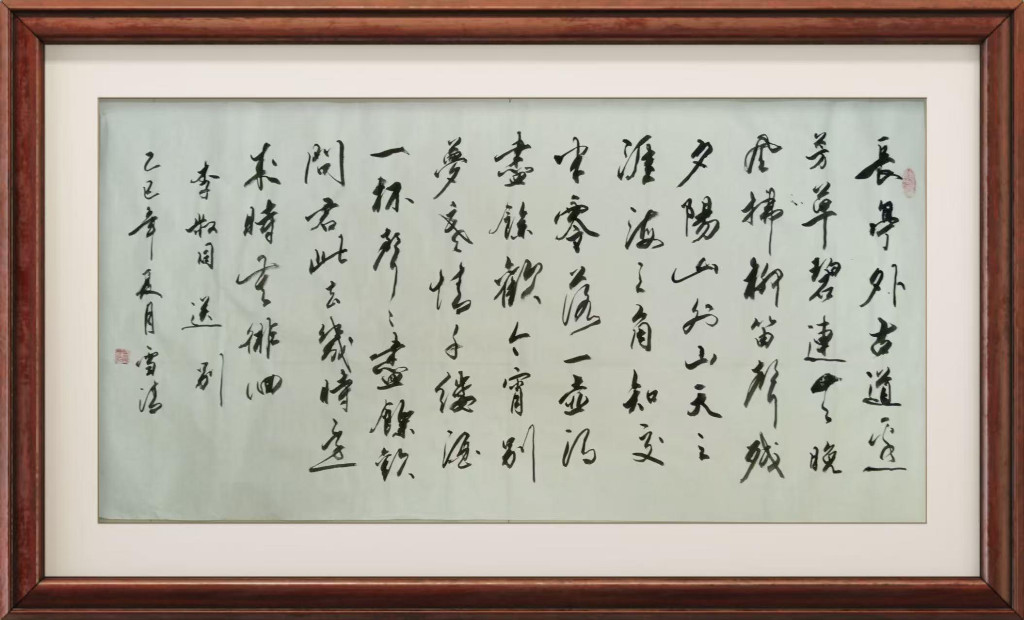 長亭外古道邊
芳草碧連天晚
風拂柳笛聲殘
夕陽山外山天之
涯海之角知交
半零落一壺
盡餘歡今宵別
夢寒情千縷酒
一杯聲〻盡餘
問君此去幾時還
來時莫徘徊
李叔同 送別
乙巳年夏月雪清